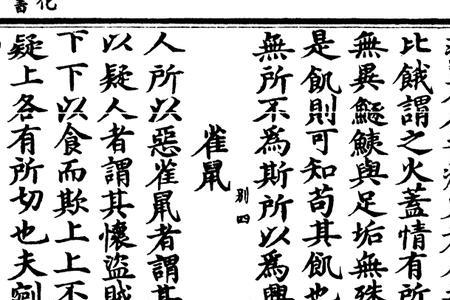 比餓謂之火蓋情有所
無異鱁鮧與足垢無殊
是飢則可知苟其飢也
無所不為斯所以為興
雀鼠 別四
人所以惡雀鼠者謂其
以疑人者謂其懷盜賊
下下以食而欺上上不
疑上各有所切也夫剜